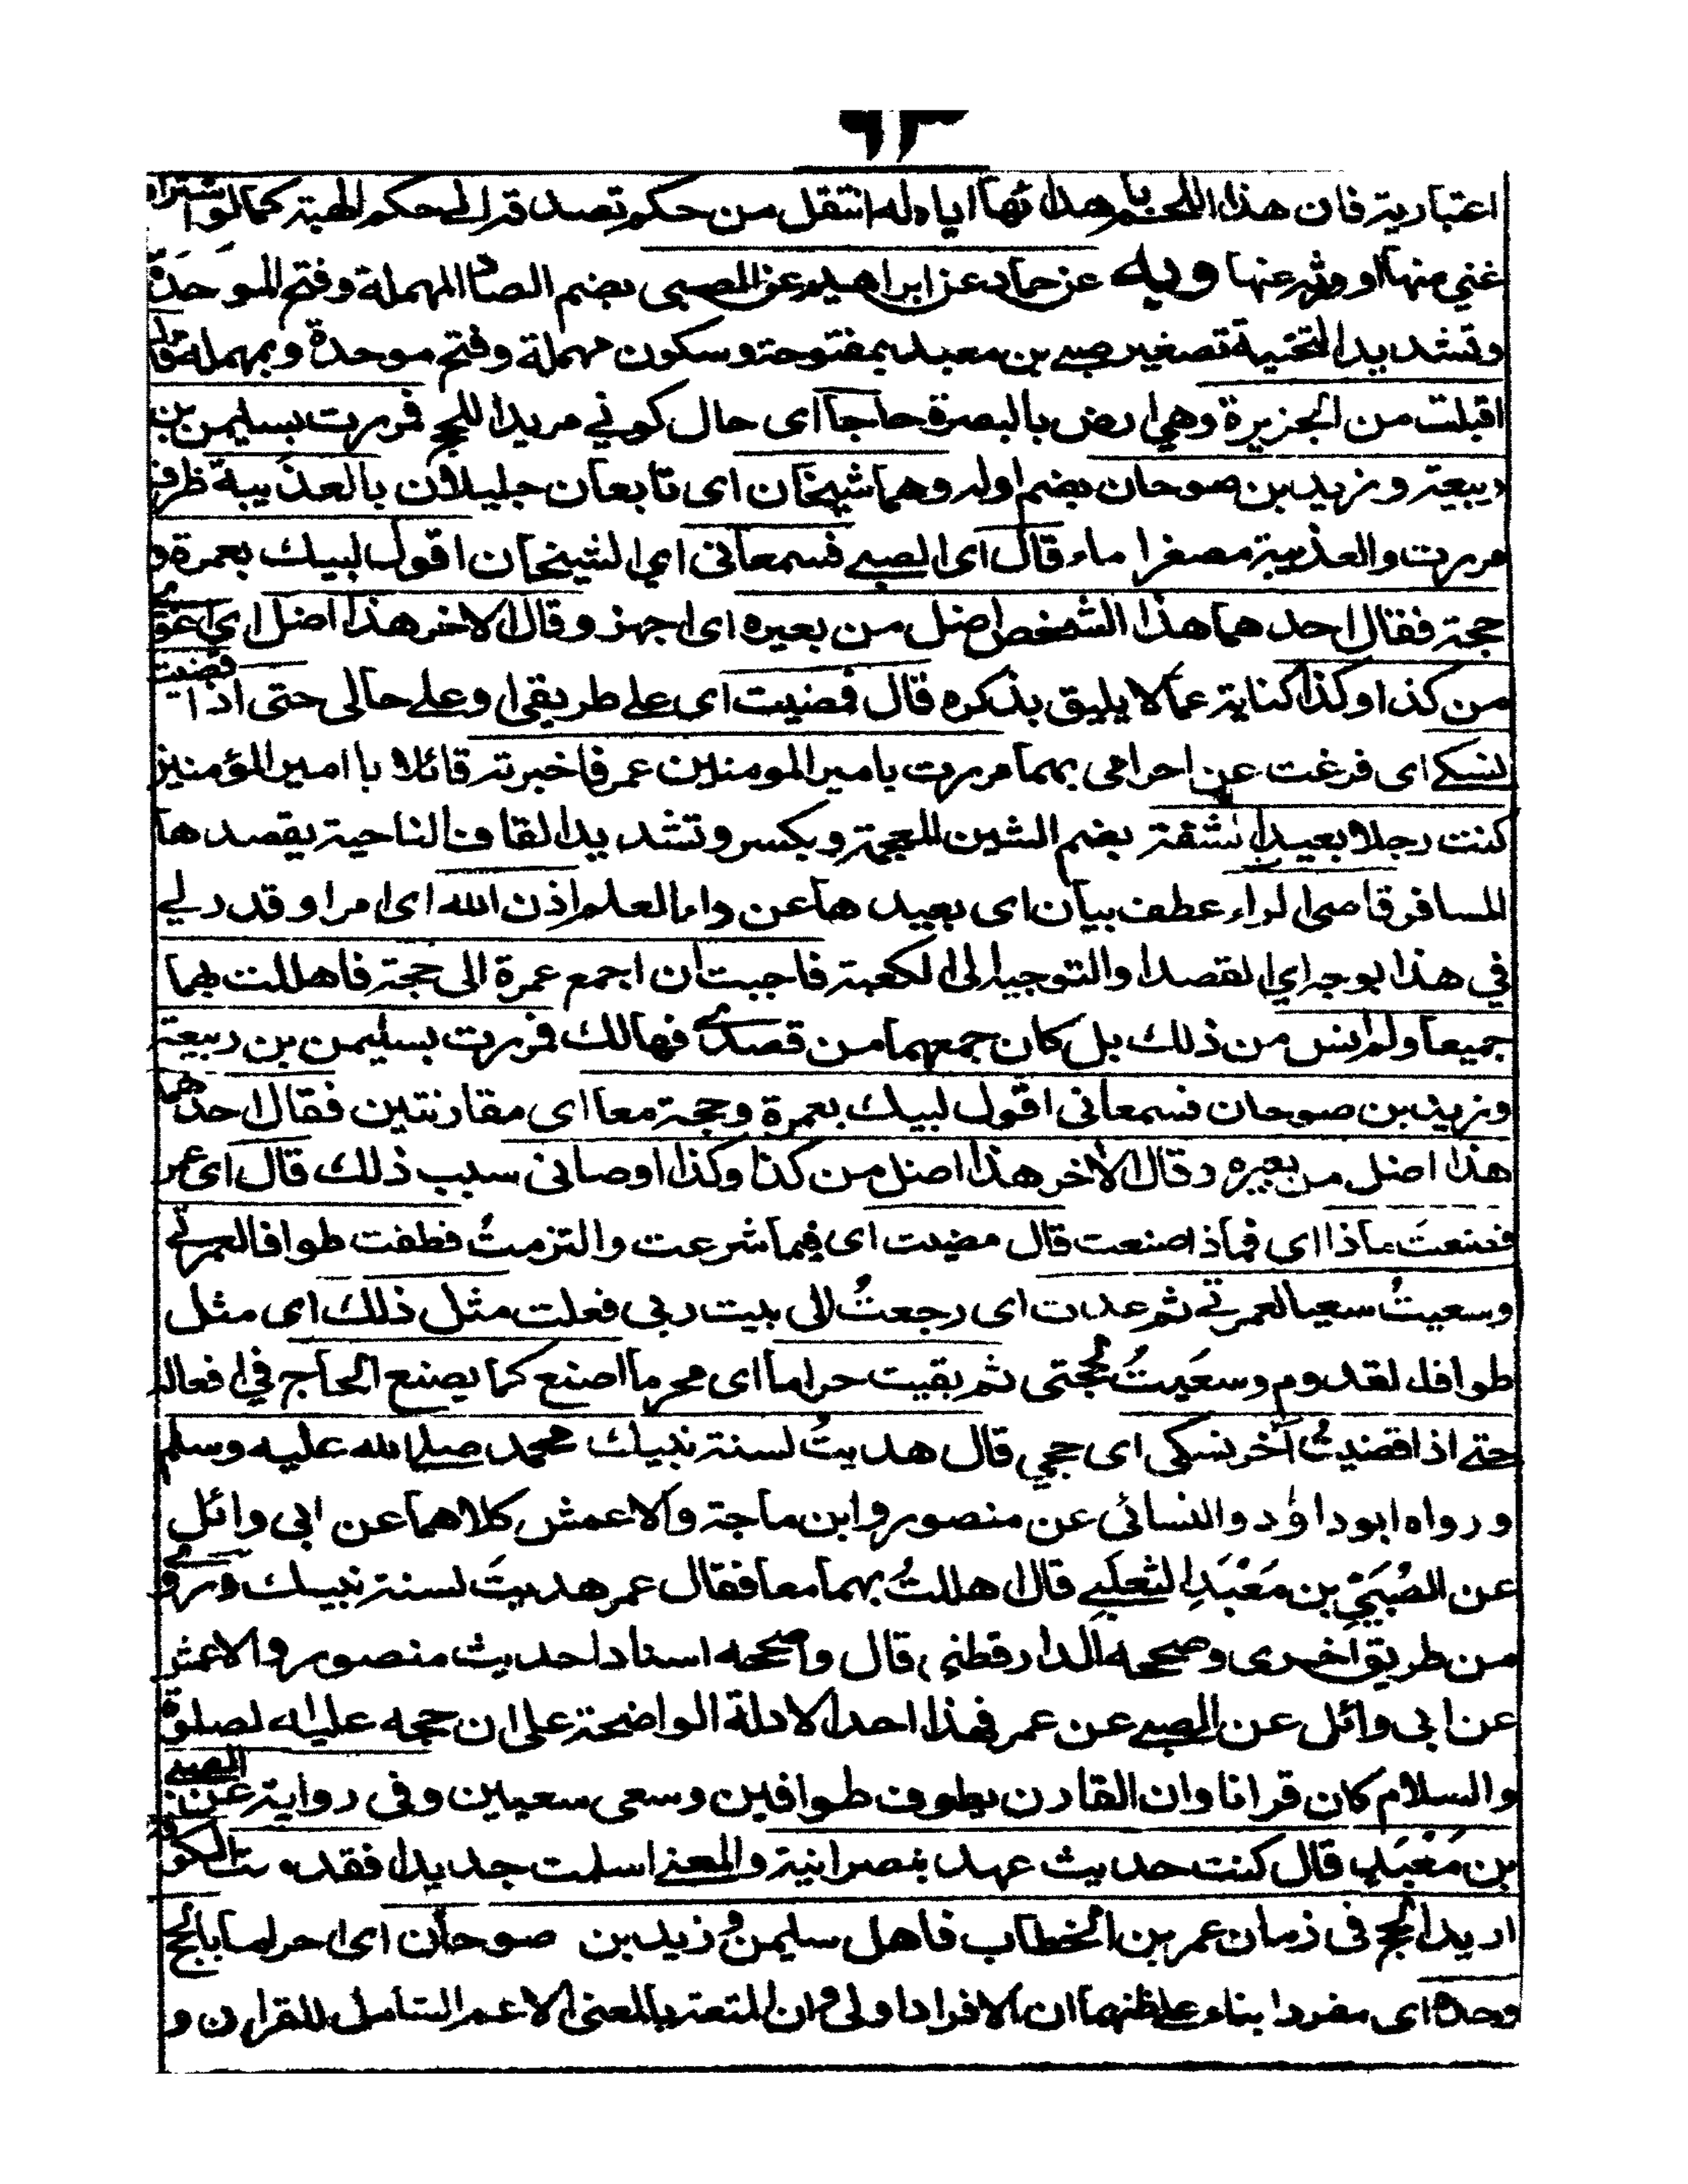 ٦٢
اعتبارية فان هذا اللحم باهدائها اياه له انتقل من حكم تصدقه الى حكم الهبة كما لو اشتراه
غني منها او ورثه عنها وبه عن حماد عن ابراهيم عن الصبى بضم الصاد المهملة وفتح الموحدة
وتشديد التحتية تصغير صبي بن معبد بمفتوحة وسكون مهملة وفتح موحدة وبمهملة قال
اقبلت من الجزيرة وهي ارض بالبصرة حاجا اى حال كوني مريدا للحج فمررت بسليمن بن
ربيعة وزيد بن صوحان بضم اوله وهما شيخان اى تابعان جليلان بالعذيبة ظرف
مررت والعذيبة مصغرا ماء قال اى الصبي فسمعانى اي الشيخان اقول لبيك بعمرة و
حجة فقال احدهما هذا الشخص اضل من بعيره اى اجهز وقال الاخر هذا اضل اي
من كذا وكذا كناية عما لا يليق بذكره قال فمضيت اى على طريقي او على حالى حتى اذا قضيت
نسكي اى فرغت عن احرامى بهما مررت بامير المومنين عمر فاخبرته قائلا يا امير المؤمنين
كنت رجلا بعيد الشقة بضم الشين المعجمة ويكسر وتشديد القاف الناحية يقصدها
المسافر قاصى الدار عطف بيان اى بعيدها عن دار العلم اذن الله اى امر او قدر لي
في هذا لوجه اي القصد او التوجه الى الكعبة فاحببت ان اجمع عمرة الى حجة فاهللت بهما
جميعا ولم انس من ذلك بل كان جمعهما من قصدي فهالك فمررت بسليمن بن ربيعة
وزيد بن صوحان فسمعانى اقول لبيك بعمرة وحجة معا اى مقارنتين فقال احدهما
هذا اضل من بعيره وقال الاخر هذا اضل من كذا وكذا اوصانى سبب ذلك قال اى عمر
فصنعت ماذا اى فماذا صنعت قال مضيت اى فيما شرعت والتزمتُ فطفت طوافا لعمرتي
وسعيتُ سعيا لعمرتي ثم عدت اى رجعتُ الى بيت ربى فعلت مثل ذلك اى مثل
طوافا لقدوم وسعيتُ لحجتى ثم بقيت حراما اى محرما اصنع كما يصنع الحاج في افعاله
حتي اذا قضيتُ آخر نسكى اى حجي قال هديتُ لسنة نبيك محمد صلى الله عليه وسلم
ورواه ابو داوٗد والنسائى عن منصور وابن ماجة والاعمش كلاهما عن ابى وائل
عن الصُّبَيّ بن مَعْبَدِ الثعلبي قال اهللتُ بهما معا فقال عمر هديتَ لسنة نبيك وروي
من طريق اخرى وصححه الدارقطنى قال واصححه اسنادا حديث منصور والاعمش
عن ابى وائل عن الصبي عن عمر فهذا احد الادلة الواضحة على ان حجه عليه الصلوة
والسلام كان قرانا وان القارن يطوف طوافين وسعى سعيين وفى رواية عن الصبي
بن مَعْبَدٍ قال كنت حديث عهد بنصرانية والمعنى اسلمت جديدا فقدمت الكوفة
اريد الحج فى زمان عمر بن الخطاب فاهل سليمن وزيد بن صوحان اى احراما بالحج
وحده اى مفردا بناء على ظنهما ان الافراد اولى وان المتعة بالمعنى الاعم الشامل للقران و